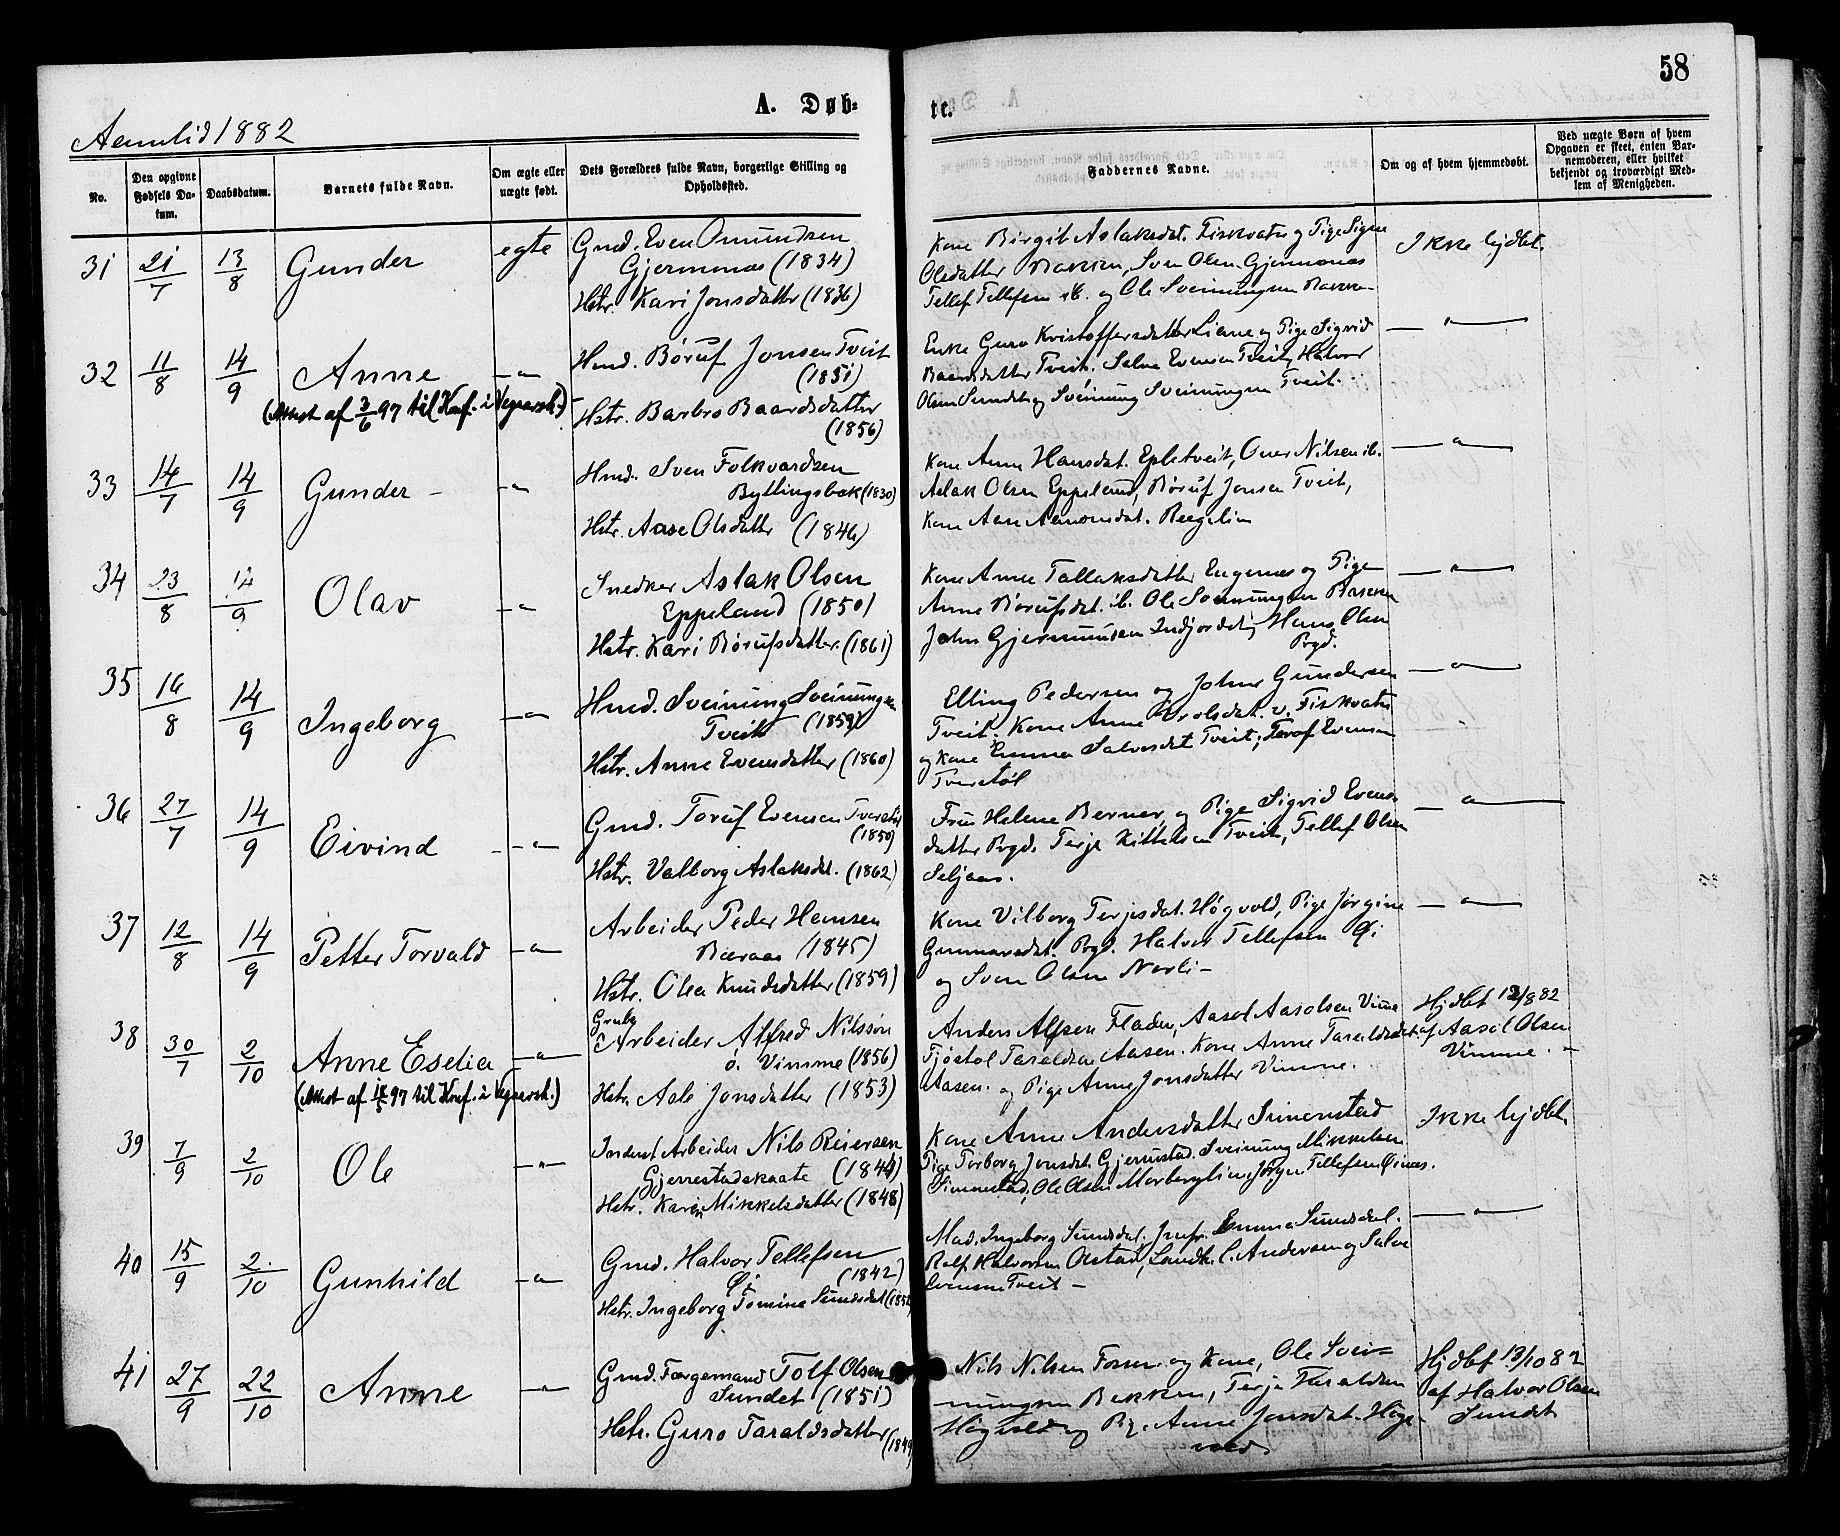 58
A. Døb-
te.
Aamlid 1882
No.
Den opgivne Fødsels Da-tum.
Daabsdatum.
Barnets fulde Navn.
Om ægte eller uægte født.
Dets Forældres fulde Navn, borgerlige Stilling og Opholdssted.
Faddernes Navne.
Om og af hvem hjemmedøbt.
Ved uægte Børn af hvem Opgaven er skeet, enten Bar-nemoderen, eller hvilket bekjendt og troværdigt Med-lem af Menigheden.
31 21/7 13/8 Gunder egte
Gmd. Even Omundsen
Gjermonæs (1834)
Hstr. Kari Jonsdatter (1836)
Kone Birgit Aslaksdat. Fiskvatn og Pige Signe
Olsdatter Bakken, Sven Olsen Gjermonæs
Tellef Tellefsen ib. og Ole Sveinungsen Bakken
Ikke hjdbt.
32 11/8 14/9 Anne -"-
(Attest af 3/6 97 til Konf. i Vegarsh.)
Hmd. Børuf Jonsen Tveit
(1851)
Hstr. Barbro Baardsdatter
(1856)
Enke Guro Kristoffersdatter Liane og Pige Sigrid
Baardsdatter Tveit. Salve Evensen Tveit, Halvor
Olsen Sundet og Sveinung Sveinungsen Tveit.
-"-
33 14/7 14/9 Gunder - -"-
Hmd. Sven Folkvardsen
Byttingsbæk (1830)
Hstr. Aase Olsdatter (1846)
Kone Anne Hansdat. Epletveit, Over Nilsen ib.
Aslak Olsen Eppeland, Børuf Jonsen Tveit,
Kone Aase Aamonsdat.
-"-
34 23/8 14/9 Olav -"-
Snedker Aslak Olsen
Eppeland (1850)
Hstr. Kari Børufsdatter. (1861)
Kone Anne Tallaksdatter Engenes og Pige
Anne Børufsdat. ib. Ole Sveinungsen Bakken
John Gjermunsen Indjordet, Hans Olsen
Bygd.
-"-
35 16/8 14/9 Ingeborg -"-
Hmd. Sveinung Sveinungsen
Tveit (1859)
Hstr. Anne Evensdatter (1860)
Elling Pedersen og Johne Gundersen
Tveit. Kone Anne Frolsdat. v. Fiskvatn
og Kone Emma Salvesdat Tveit; Toruf Evensen
Tverstøl
-"-
36 27/7 14/9 Eivind -"-
Gmd. Toruf Evensen Tverstøl
(1850)
Hstr. Valborg Aslaksdat. (1862)
Fru Helene Berner, og Pige Sigrid Evens-
datter Bygd. Terje Kittelsen Tveit, Tellef Olsen
Seljaas.
-"-
37 12/8 14/9 Petter Torvald -"-
Arbeider Peder Hansen
Bæraas (1845)
Hstr. Olea Knudsdatter (1859)
Kone Vilborg Terjesdat. Høgvold, Pige Jørgine
Gunnarsdat. Bygd. Halvor Tellefsen Øi
og Sven Olsen Norli -
-"-
38 30/7 2/10 Anne Eselia -"-
(Attest af 14/5 97 til Konf. i Vegarsh.)
Grube
Arbeider Alfred Nilssøn
ø. Vimme (1856)
Hstr. Asle Jonsdatter (1853)
Anders Alfsen Fladen, Aasol Aasolsen Vimme
Tjøstol Taraldsen Aasen. Kone Anne Taraldsdat.
Aasen. og Pige Anne Jonsdatter Vimme.
Hjdbt 13/8 82
af Aasol Olsen
Vimme. -
39 7/9 2/10 Ole -"-
Inderst Arbeider Nils Reiersen
Gjerrestadskaate (1844)
Hstr. Karen Mikkelsdatter (1848)
Kone Anne Andersdatter Simonstad
Pige Torborg Jonsdat. Gjerrestad. Sveinung Mikkelsen
Simonstad, Ole Olsen Morberglien, Jørgen Tellefsen Øines.
Ikke hjdbt.
40 15/9 2/10 Gunhild -"-
Gmd. Halvor Tellefsen
Øi (1842)
Hstr. Ingeborg Tomine Sundsdat (1852)
Mad. Ingeborg Sundsdal. Jmfr. Emma Sundsdal.
Rolf Halvorsen Olstad, Landh. C. Andersen og Salve
Evensen Tveit -
-"-
41 27/9 22/10 Anne -"-
Gmd. Færgemand Tolf Olsen
Sundet (1851)
Hstr. Guro Taraldsdatter
(1849)
Nils Nilsen Fossen og Kone, Ole Svei-
nungsen Bekken, Terje Taraldsen
Høgvold og Pige Anne Jonsdat. Høg-
vold
Hjdbt 13/10 82
af Halvor Olsen
Sundet